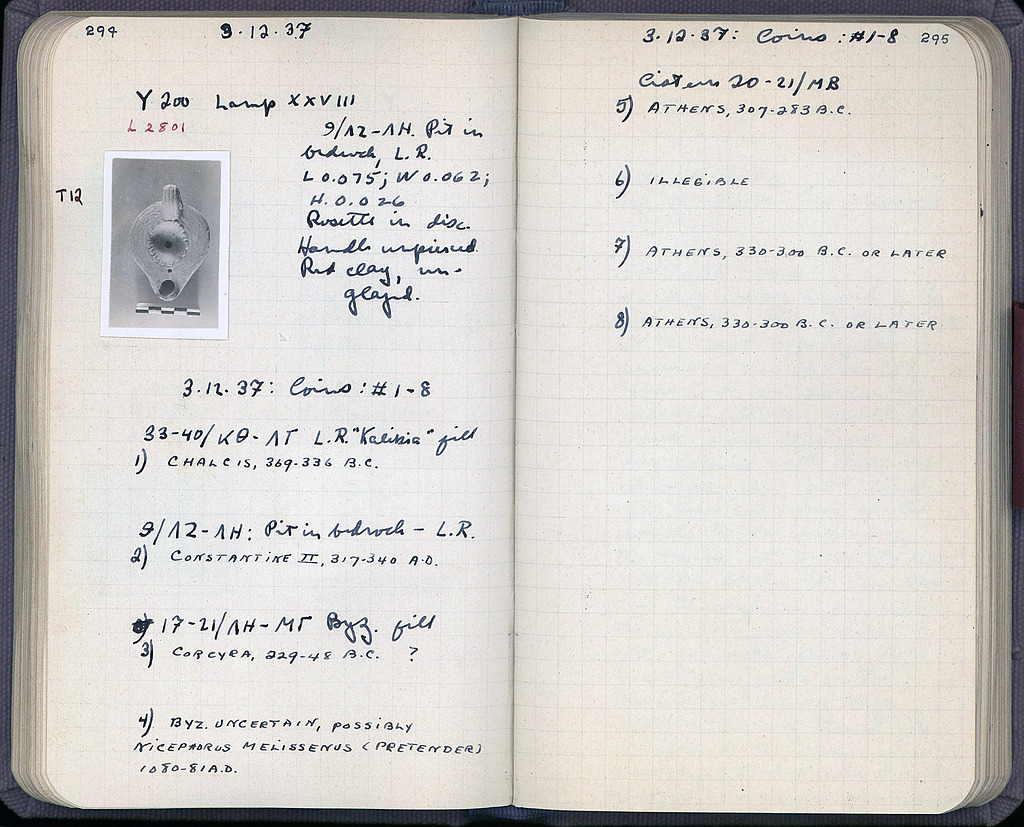 294
3.12.37
Y 200 Lamp XXVIII
L 2801
9/ΛΖ-ΛΗ. Pit in
bedrock, L.R.
L 0.075; W 0.062;
H. 0.026
Rosette in disc.
Handle unpierced.
Red clay, un-
glazed.
T12
3.12.37: Coins: #1-8
33-40/ΚΘ-ΛΓ L.R. "Kalissia" fill
1) CHALCIS, 369-336 B.C.
9/ΛΖ-ΛΗ: Pit in bedrock - L.R.
2) CONSTANTINE II, 317-340 A.D.
17-21/ΛΗ-ΜΓ Byz. fill
3) CORCYRA, 229-48 B.C. ?
4) BYZ. UNCERTAIN, POSSIBLY
NICEPHORUS MELISSENUS (PRETENDER)
1080-81 A.D.
3.12.37: Coins: #1-8
295
Cistern 20-21/ΜΒ
5) ATHENS, 307-283 B.C.
6) ILLEGIBLE
7) ATHENS, 330-300 B.C. OR LATER
8) ATHENS, 330-300 B.C. OR LATER